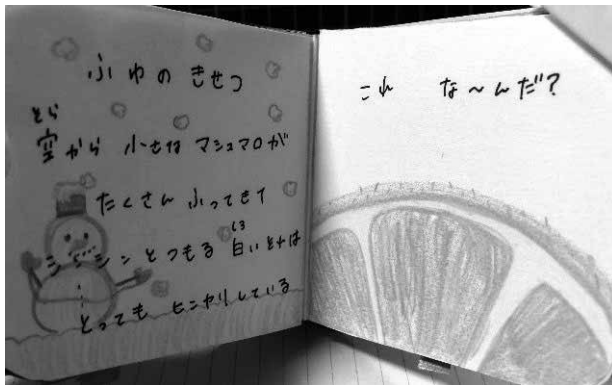 ふゆの きせつ
そら
空から 小さな マシュマロが
たくさん ふってきて
しろ
シンシンとつもる 白いそれは
とっても ヒンヤリしている
これ な〜んだ?